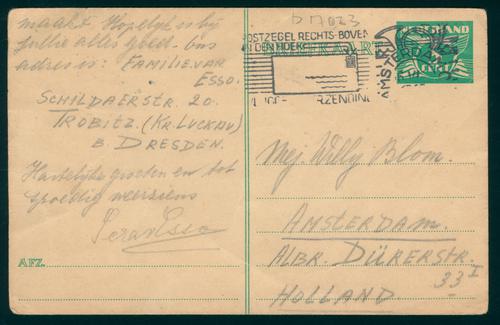 maakt. Hopelijk is bij
jullie alles goed. Ons
adres is: FAMILIE VAN
ESSO.
SCHILDAERSTR. 20.
TROBITZ. (KR. LUCKAU)
B. DRESDEN.
Hartelijke groeten en tot
spoedig weerziens
AFZ.
D M023
POSTZEGEL RECHTS BOVEN
IN DEN HOEK
NEDERLAND
CENT
AMSTERDAM
Mej. Willy Blom.
AMSTERDAM.
ALBR. DÜRERSTR.
33 I
HOLLAND